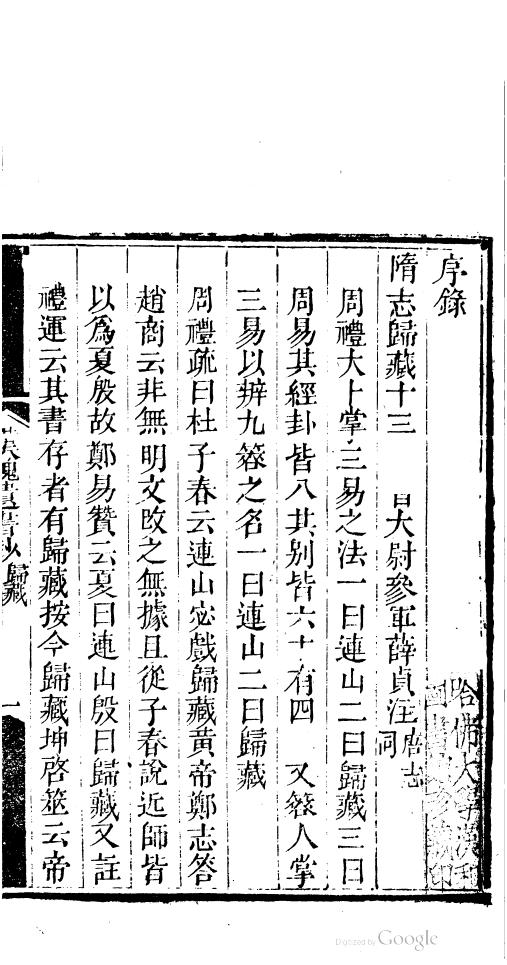 序錄
隋志歸藏十三　大尉參軍薛貞注唐志同
周禮大卜掌三易之法一曰連山二曰歸藏三曰
周易其經卦皆八其别皆六十有四　又簭人掌
三易以辨九簭之名一曰連山二曰歸藏
周禮疏曰杜子春云連山宓戲歸藏黃帝鄭志答
趙商云非無明文改之無據且從子春說近師皆
以為夏殷故鄭易贊云夏曰連山殷曰歸藏又註
禮運云其書存者有歸藏按今歸藏坤啓筮云帝
漢魏遺書鈔 歸藏
一
哈佛大學漢和
圖書館珍藏印
Digitized by Google